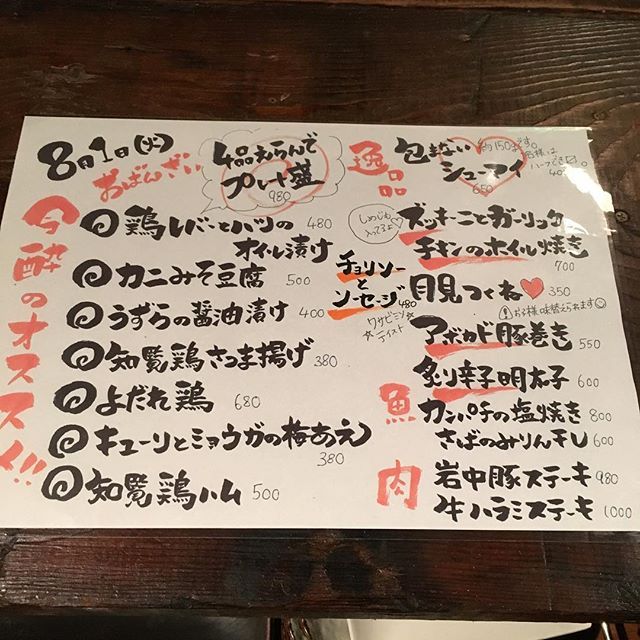 8月1日(火)
今酔のオススメ!!
おばんざい
4品えらんで
プレート盛
980
鶏レバーとハツの
オイル漬け 480
カニみそ豆腐 500
うずらの醤油漬け 400
知覧鶏さつま揚げ 380
よだれ鶏 680
キューリとミョウガの梅あえ
380
知覧鶏ハム 500
チョリソー
と
ソーセージ 480
☆ワサビミソ
テイスト☆
逸品
包まない
シューマイ
650
約150g
ハーフでき
400
しめじも
入ってるよ♡
ズッキーニとガーリック
チキンのホイル焼き
700
月見つくね♥ 350
お子様味替えられます☺
アボカド豚巻き 550
炙り辛子明太子 600
魚
カンパチの塩焼き 800
さばのみりん干し 600
肉
岩中豚ステーキ 980
牛ハラミステーキ 1000